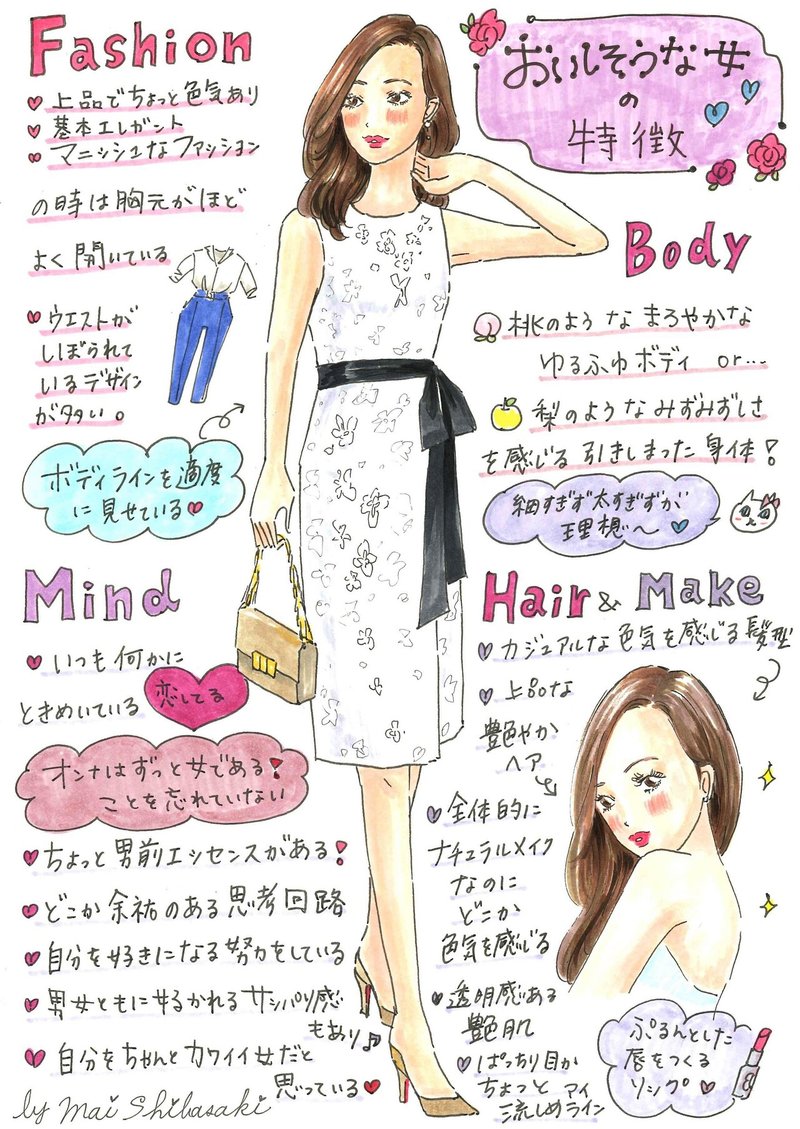 おいしそうな女
の
特徴
Fashion
上品でちょっと色気あり
基本エレガント
マニッシュなファッション
の時は胸元がほど
よく開いている
ウエストが
しぼられて
いるデザイン
が多い。
ボディラインを適度
に見せている
Body
桃のようなまろやかな
ゆるふゆボディ or…
梨のようなみずみずしさ
を感じる引きしまった身体!
細すぎず太すぎずが
理想〜
Mind
いつも何かに
ときめいている
恋してる
オンナはずっと女である!
ことを忘れていない
ちょっと男前エッセンスがある!
どこか余裕のある思考回路
自分を好きになる努力をしている
男女ともに好かれるサッパリ感
もあり♪
自分をちゃんとカワイイ女だと
思っている
Hair & Make
カジュアルな色気を感じる髪型
上品な
艶やか
ヘア
全体的に
ナチュラルメイク
なのに
どこか
色気を感じる
透明感ある
艶肌
ぱっちり目か
ちょっと
流しめアイライン
ぷるんとした
唇をつくる
リップ
by Mai Shibasaki